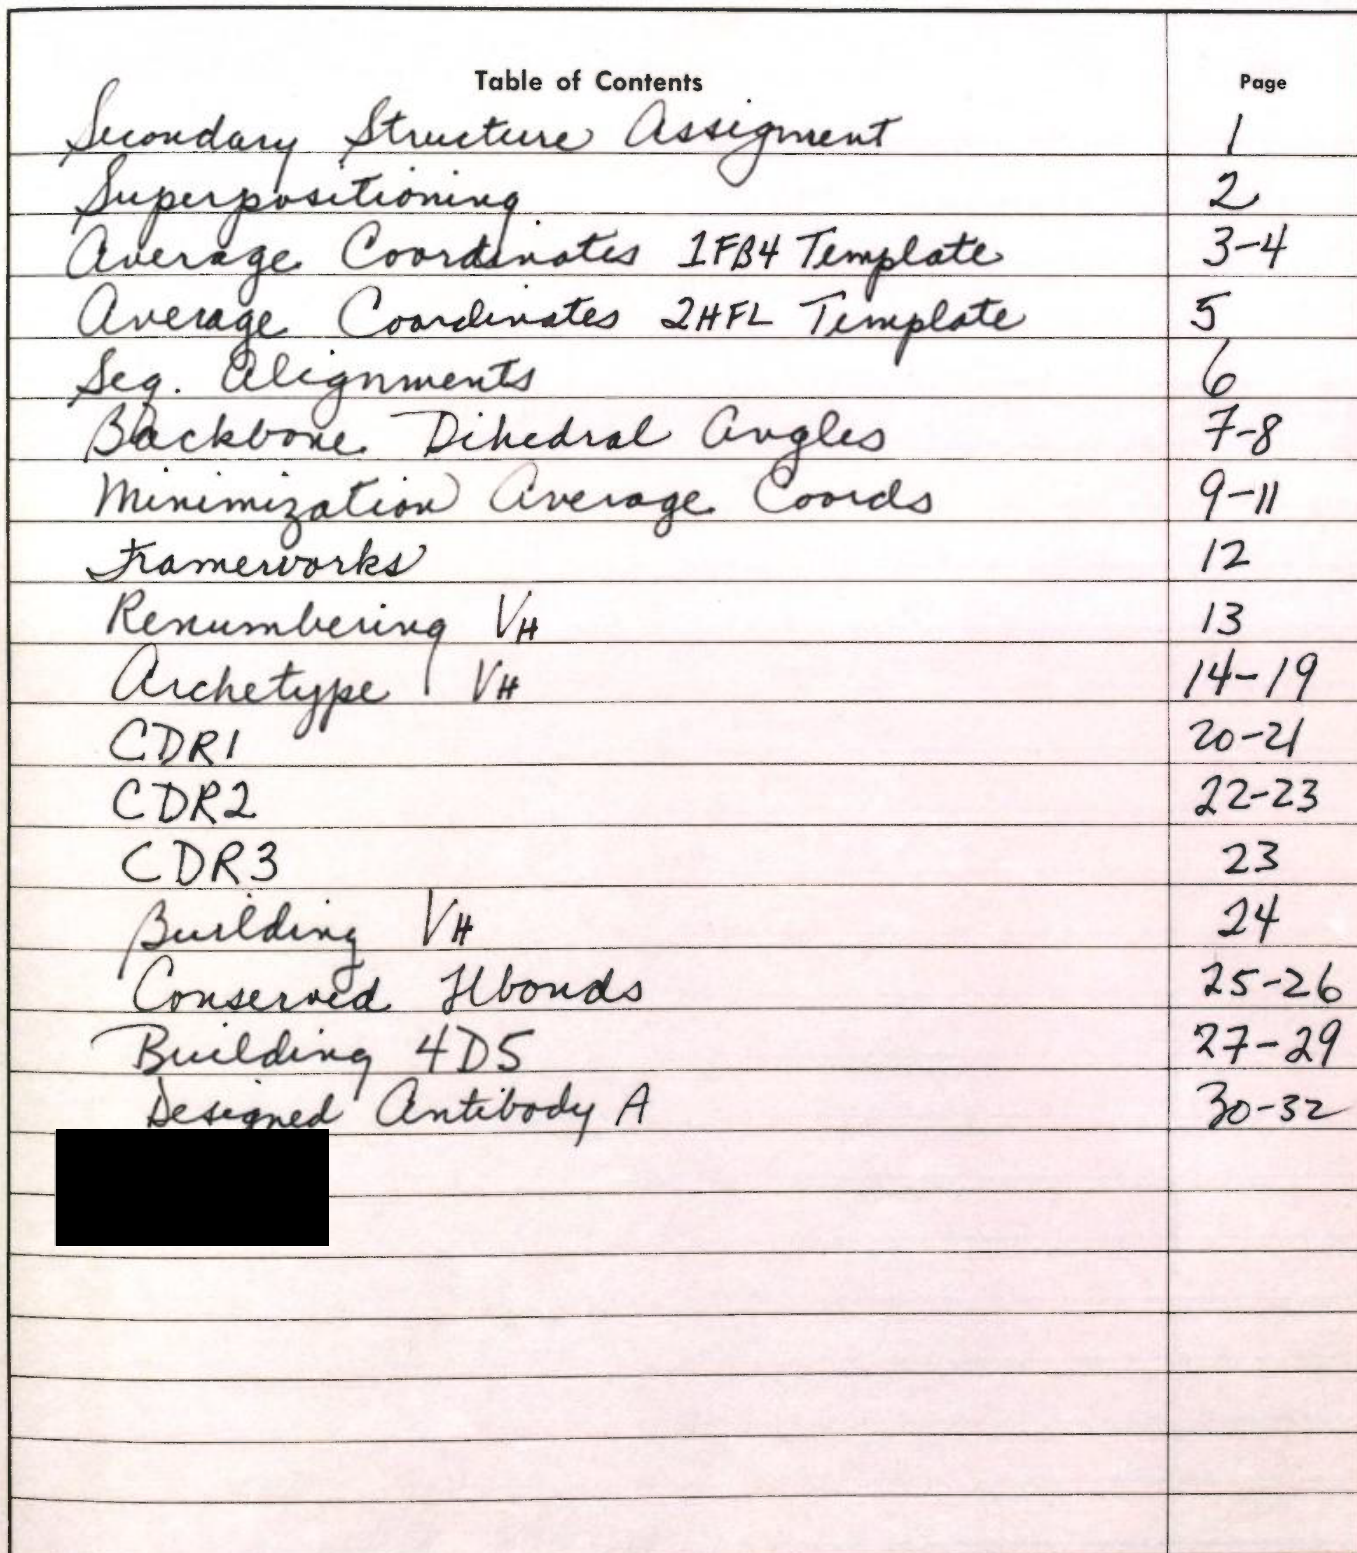 Table of Contents Page
Secondary Structure Assigment 1
Superpositioning 2
Average Coordinates 1FB4 Template 3-4
Average Coordinates 2HFL Template 5
Seq. Alignments 6
Backbone Dihedral Angles 7-8
Minimization Average Coords 9-11
Frameworks 12
Renumbering VH 13
Archetype VH 14-19
CDR1 20-21
CDR2 22-23
CDR3 23
Building VH 24
Conserved Hbonds 25-26
Building 4D5 27-29
Designed Antibody A 30-32